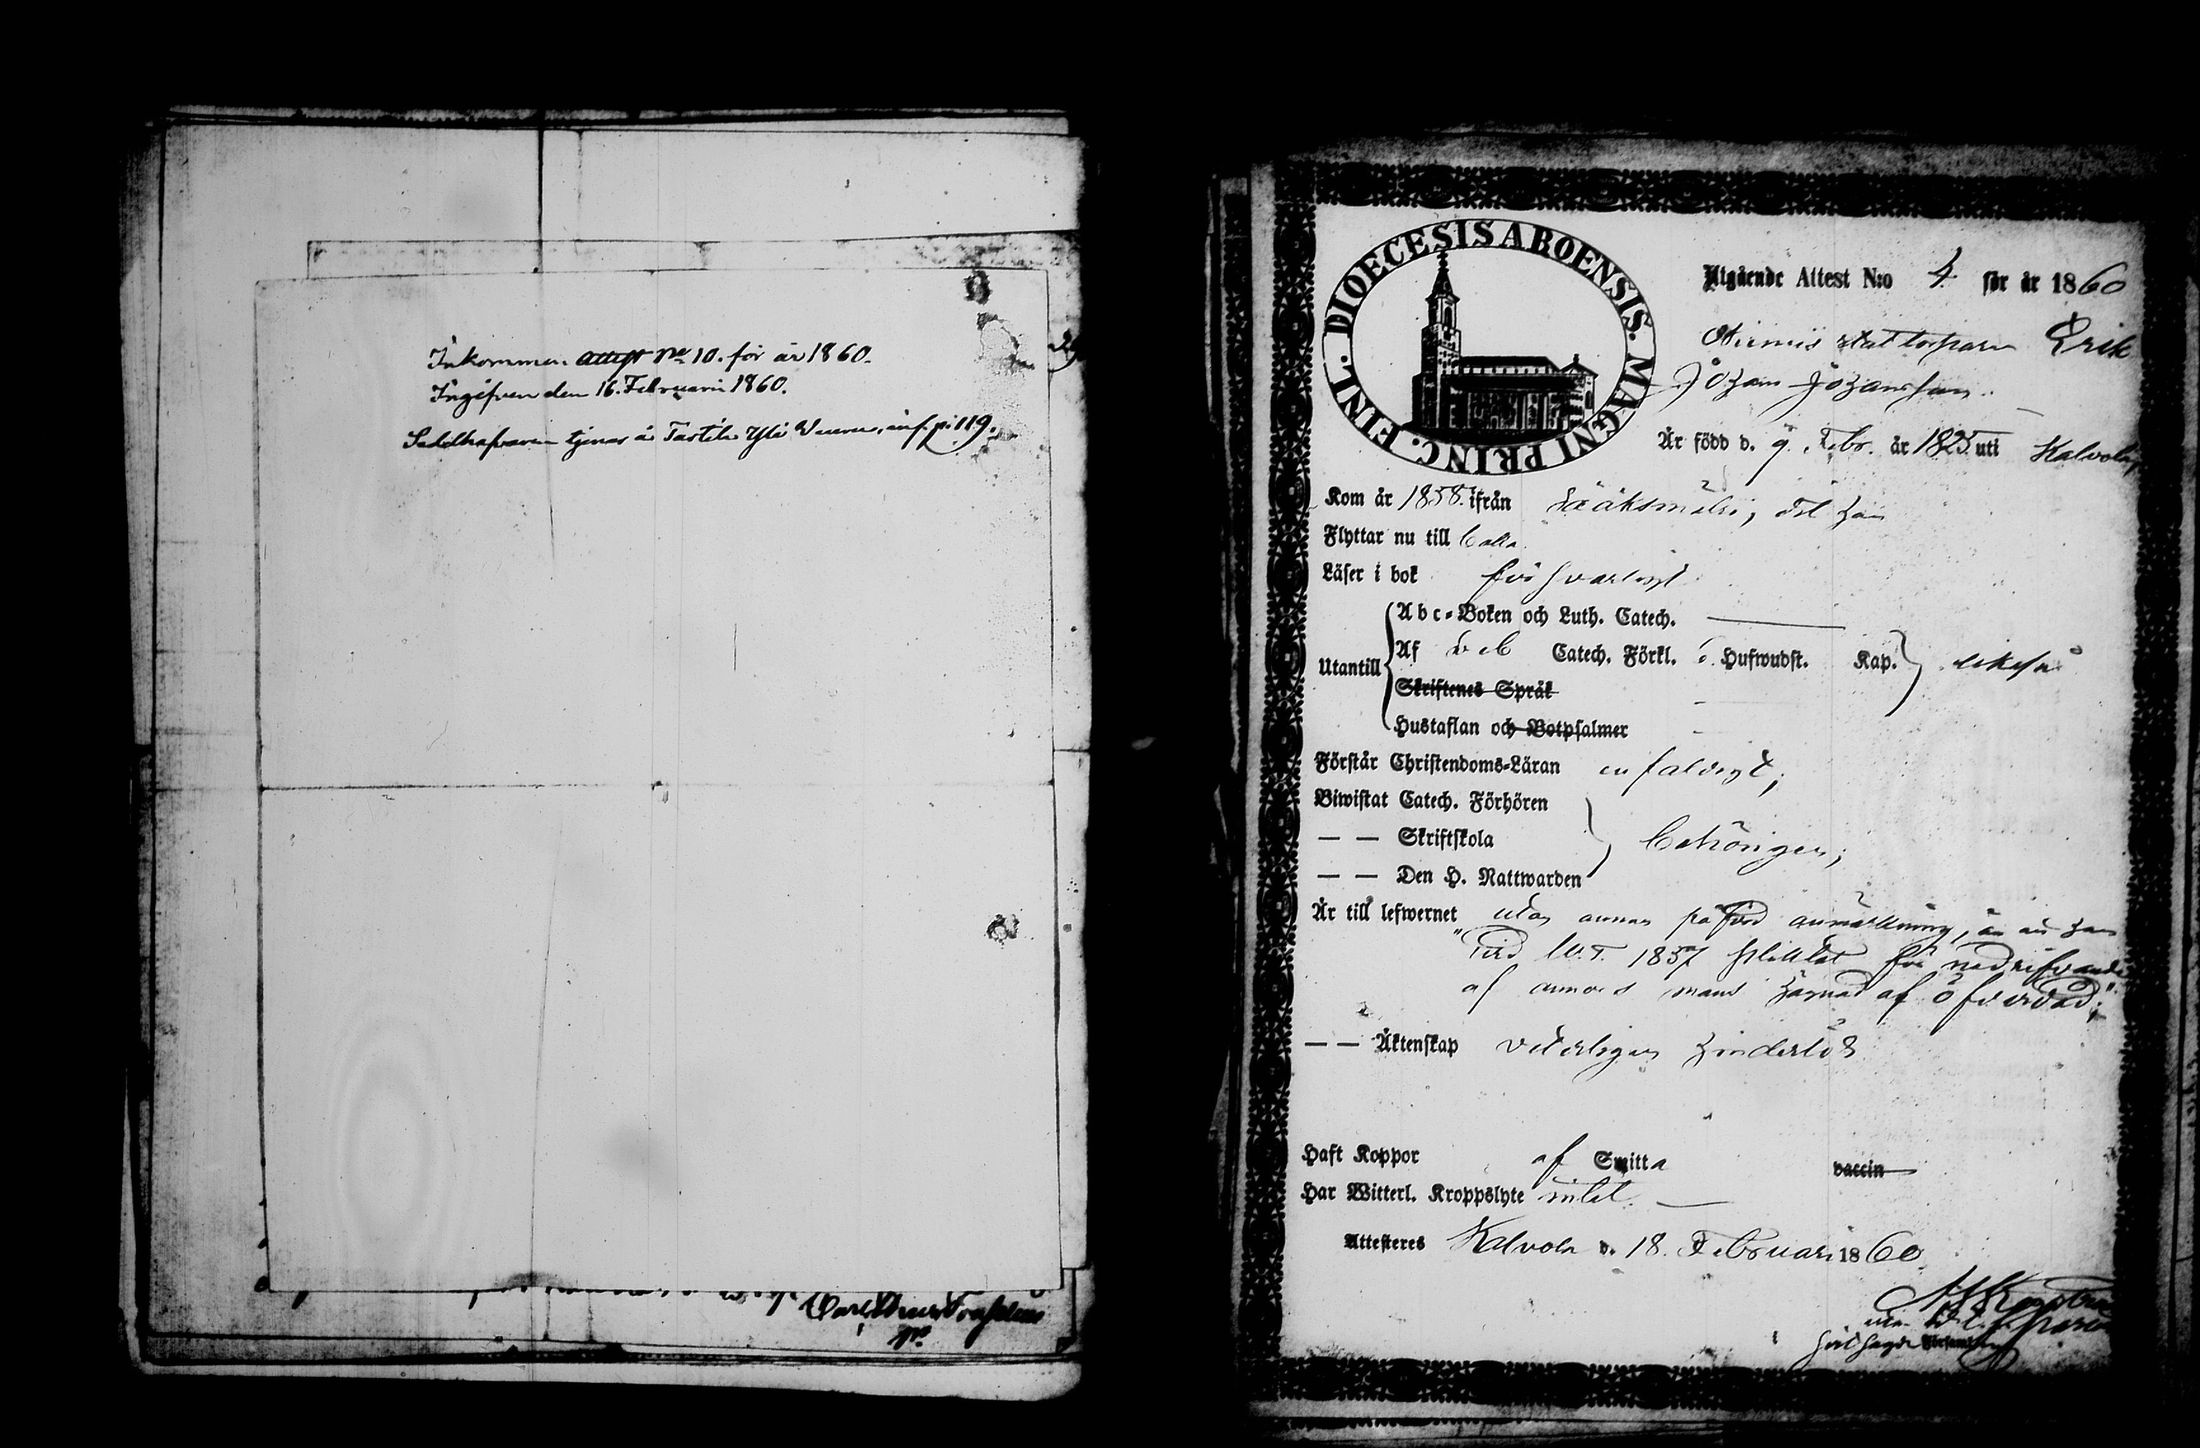 Inkommen attest No 10. för år 1860.
Ingifven den 16. Februarii 1860.
tjenar å Yli inf. p. 119.
DIOECESIS ABOENSIS. MAGNI PRINC. FINL.
Utgående Attest N:o 4 för år 1860
Erik
Johan Johansson.
Är född d. 9. Febr. år 1825 uti Kalvola,
Kom år 1858. ifrån Sääksmäki, dit han
Flyttar nu till
Läser i bok försvarligt
Utantill
Abc-Boken och Luth. Catech. —
Af Catech. Förkl. Hufwudst. Kap. likaså
Skriftenes Språk
Hustaflan och Botpsalmer
Förstår Christendoms-Läran enfaldigt,
Biwistat Catech. Förhören
— — Skriftskola behörigen,
— — Den H. Nattwarden
Är till lefwernet utan annan påförd anmärkning, än att han
"vid W.T. 1857 pliktat för nedrifvande
af annors mans hägnad af öfverdåd;"
— — Äktenskap veterligen hinderlös
Haft Koppor af Smitta vaccin
Har Witterl. Kroppslyte intet. —
Attesteres Kalvola d. 18. Februari 1860.